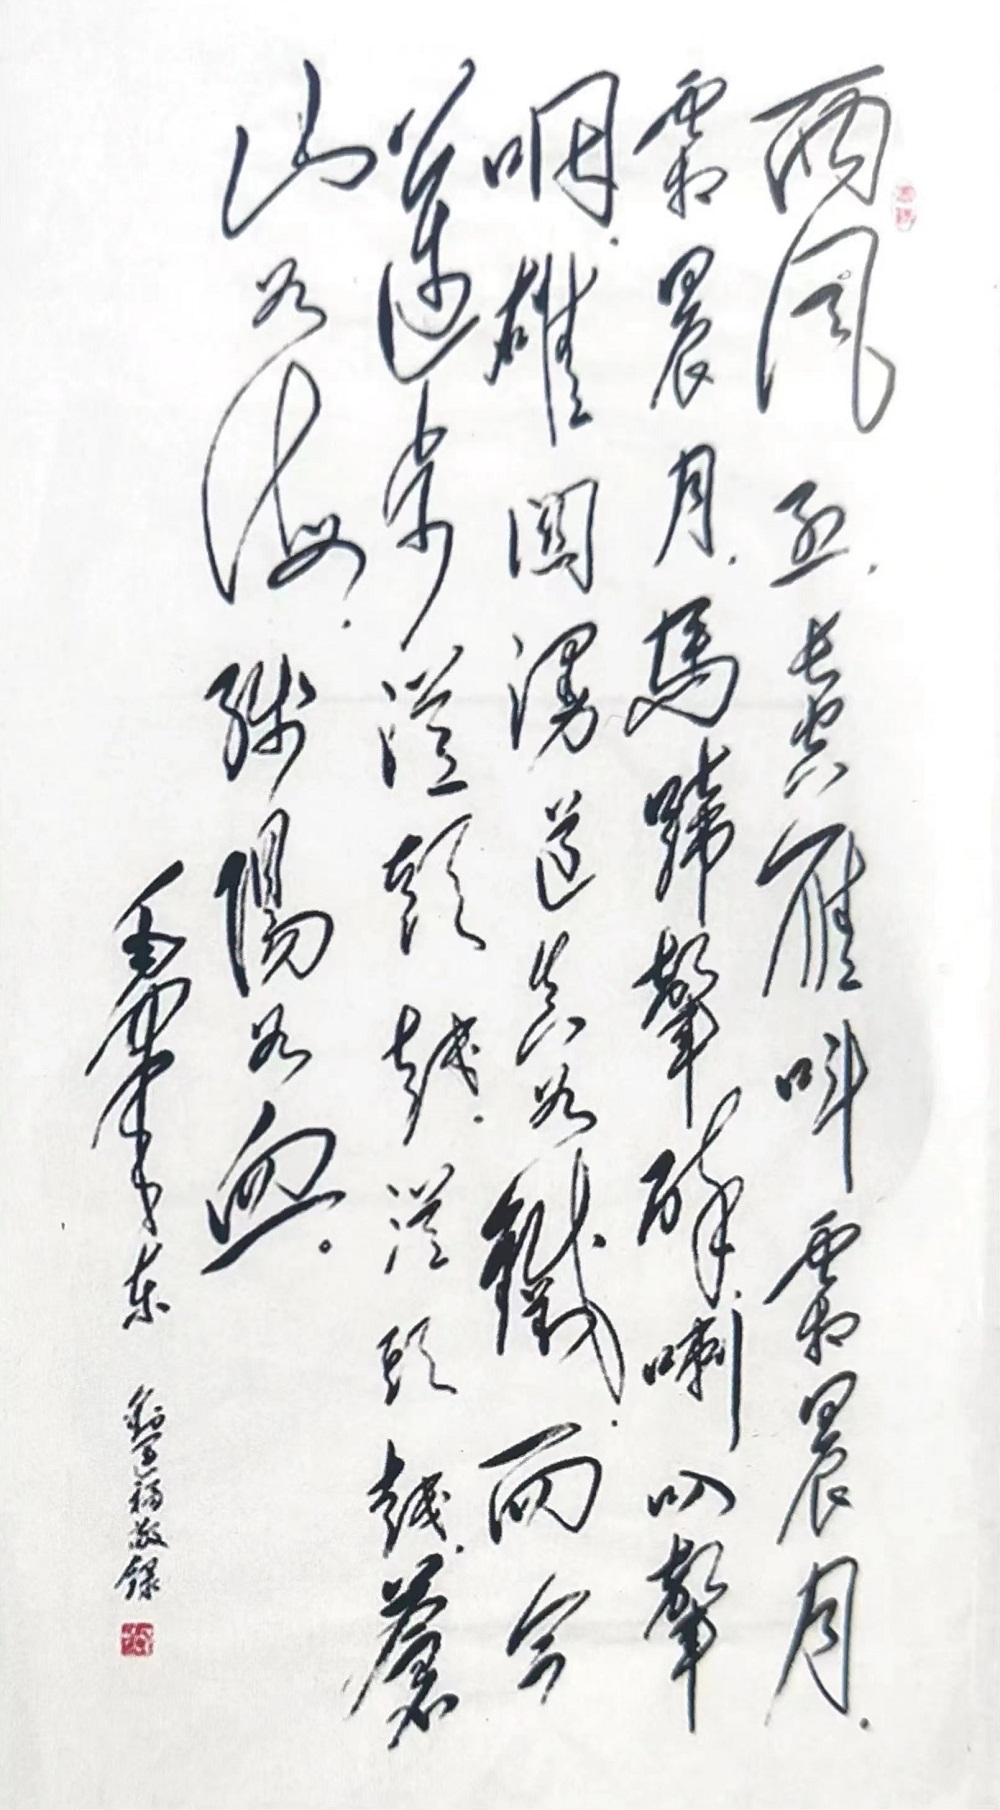 西風烈.長空雁叫霜晨月.
霜晨月.馬蹄聲碎.喇叭聲
咽.雄関漫道真如鐵.而今
邁步從頭越.從頭越.蒼
山如海.殘陽如血.
毛澤东
福敬録